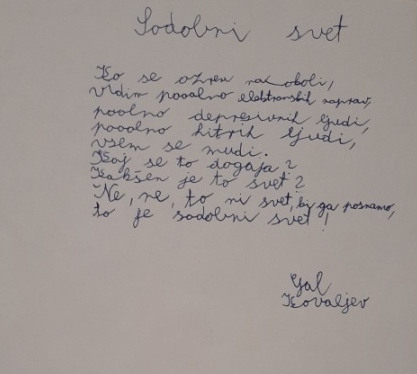 Sodobni svet
Ko se ozrem naokoli,
vidim pooolno elektronskih naprav,
pooolno depresivnih ljudi,
pooolno hitrih ljudi,
vsem se mudi.
Kaj se to dogaja?
Kakšen je to svet?
Ne, ne, to ni svet, ki ga poznamo,
to je sodobni svet!
Gal
Kovaljev